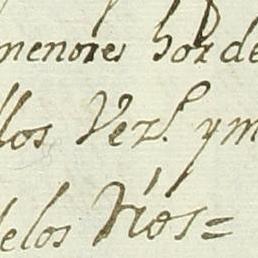 menores horde
llos Vezs. ym
delos Ríos =